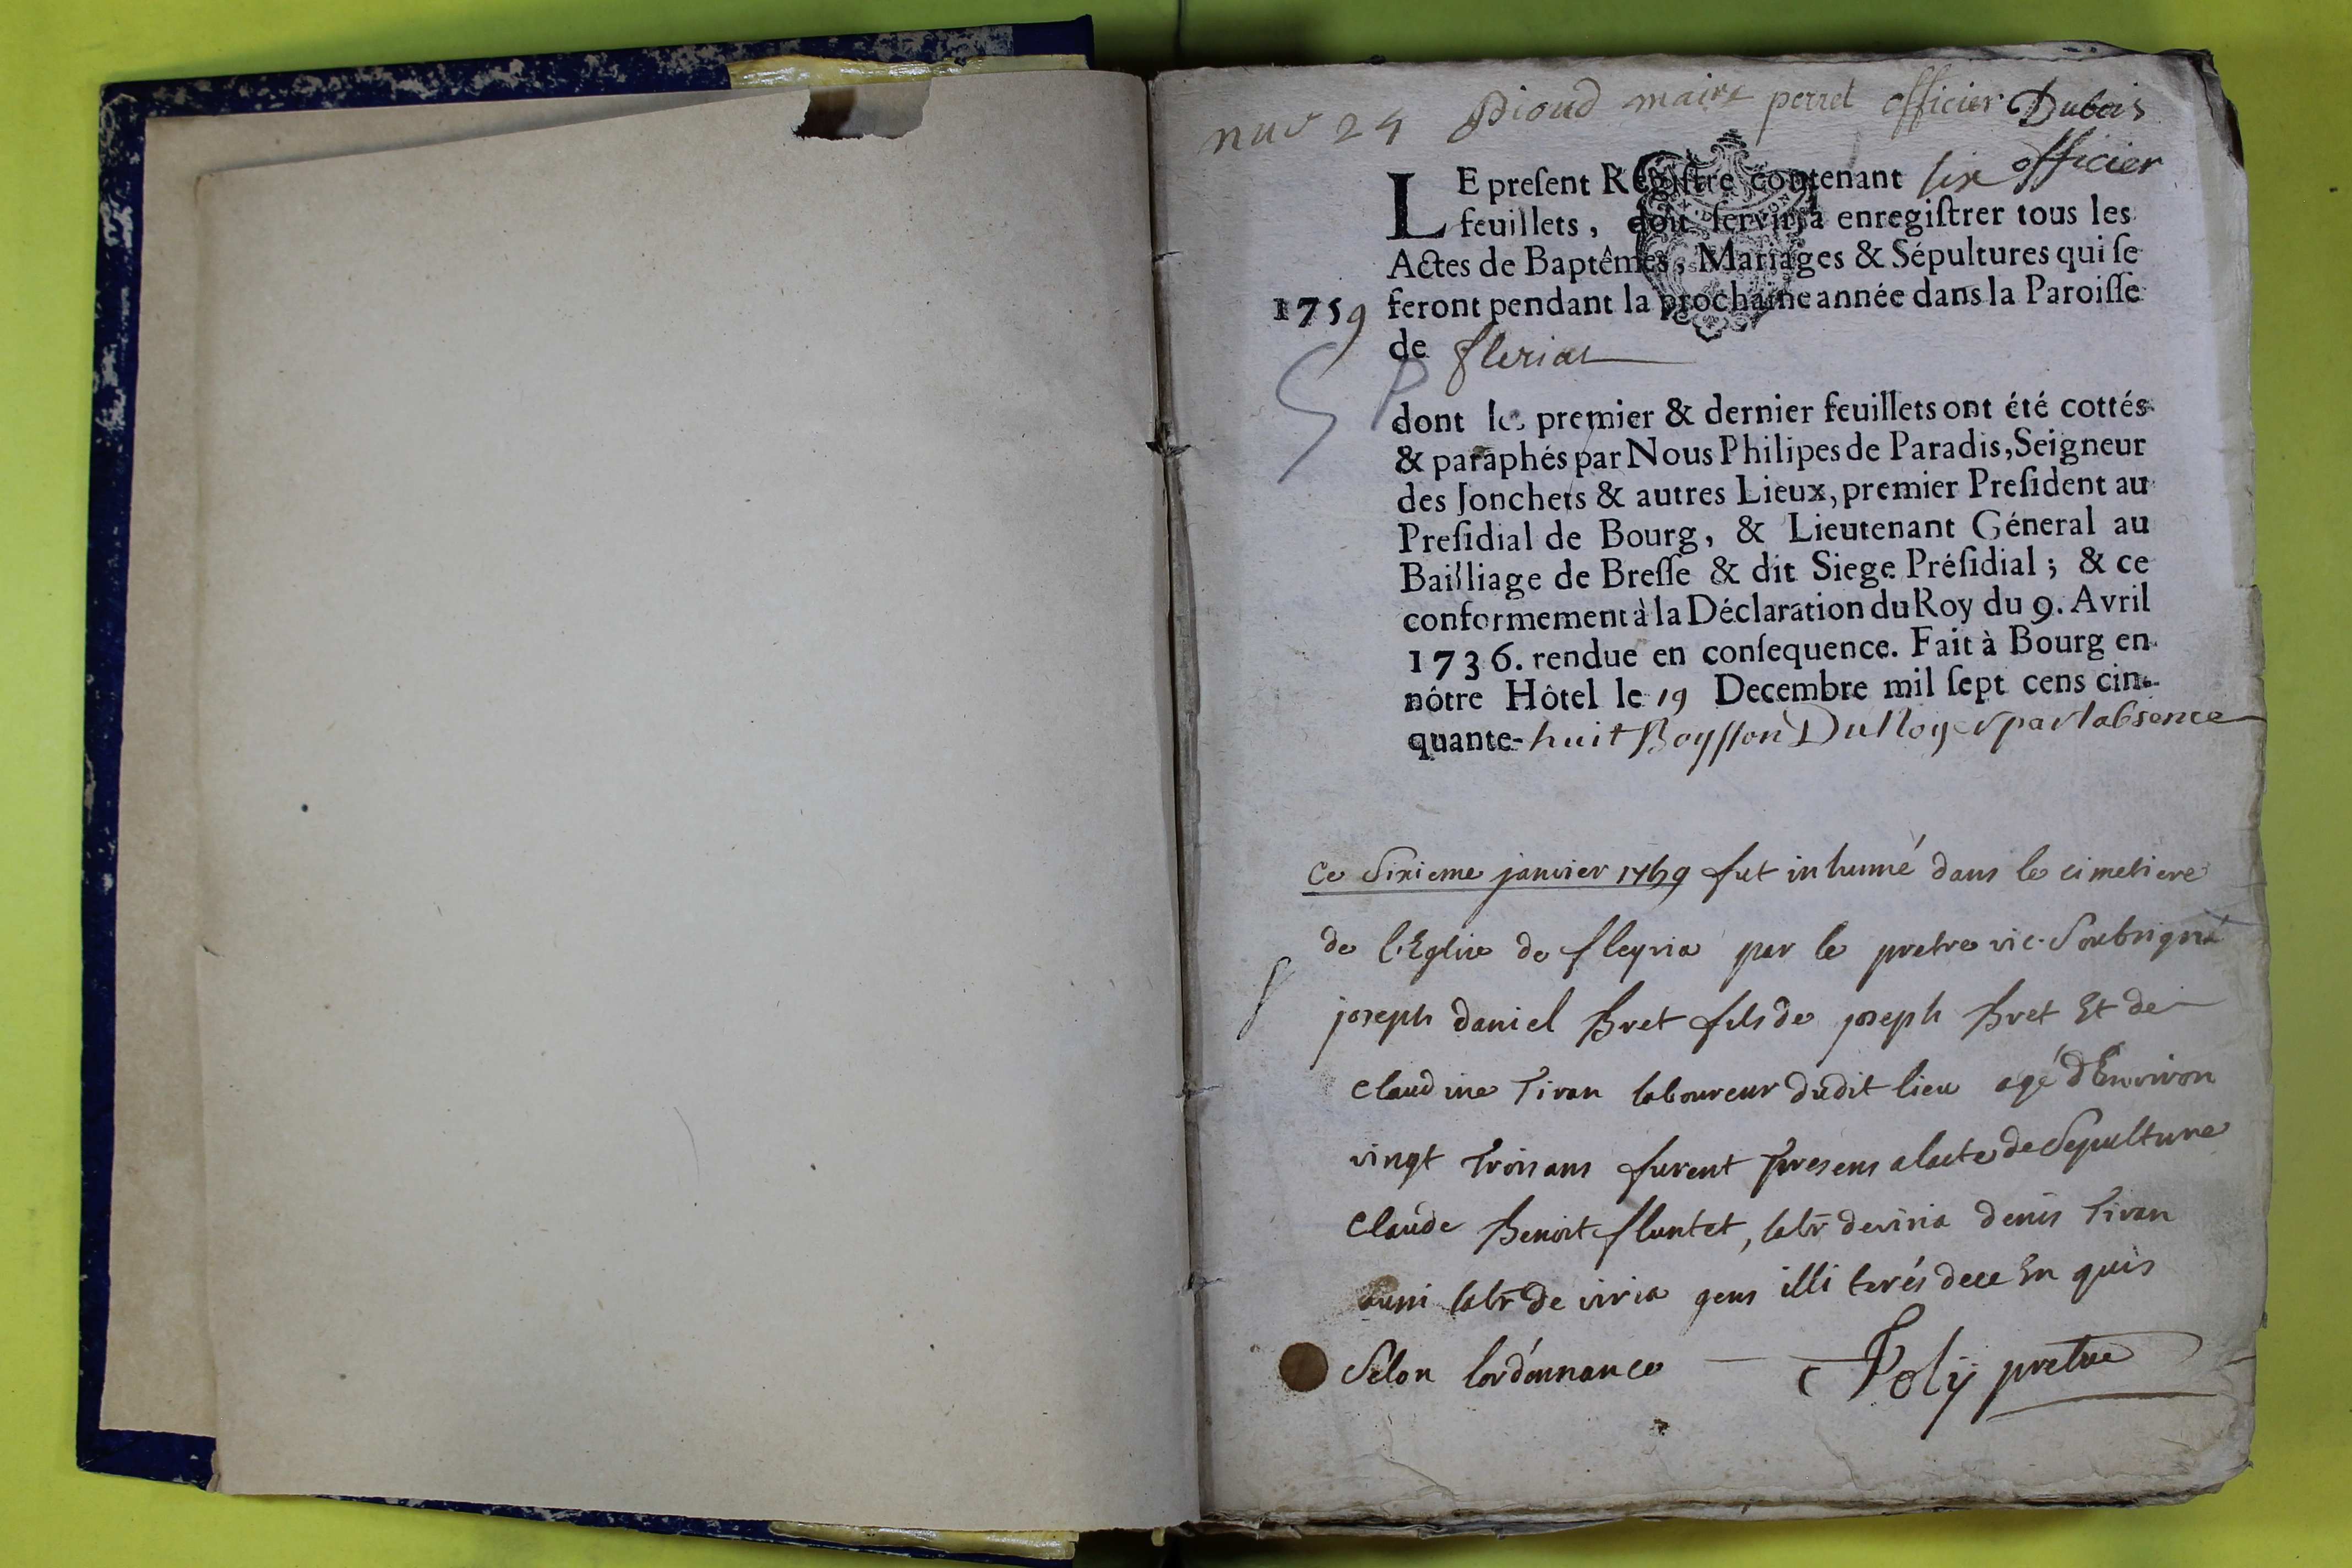 nuo 24 Pioud maire perret officier Dubois
officier
LE preſent Regiſtre contenant six
feuillets, doit ſervir à enregiſtrer tous les
Actes de Baptêmes, Mariages & Sépultures qui ſe
1759 feront pendant la prochaine année dans la Paroiſſe
de fleriat
dont les premier & dernier feuillets ont été cottés
& paraphés par Nous Philipes de Paradis, Seigneur
des Jonchets & autres Lieux, premier Preſident au
Preſidial de Bourg, & Lieutenant Géneral au
Bailliage de Breſſe & dit Siege Préſidial ; & ce
conformement à la Déclaration du Roy du 9. Avril
1736. rendue en conſequence. Fait à Bourg en
nôtre Hôtel le 19 Decembre mil ſept cens cin-
quante-huit Boysson Du Noyer par labsence
Ce Sixieme janvier 1759 fut inhumé dans le cimetiere
de l'Eglise de fleyria par le pretre vic. Soubsigné
joseph daniel Bret fils de joseph Bret Et de
claudine Tiran laboureur dudit lieu agé d'Environ
vingt trois ans furent presens a lacte de Sepulture
claude Benoit fluntet, labr de viria denis Tiran
aussi labr de viria gens illi terés de ce En quis
Selon lordonnance Poly pretre